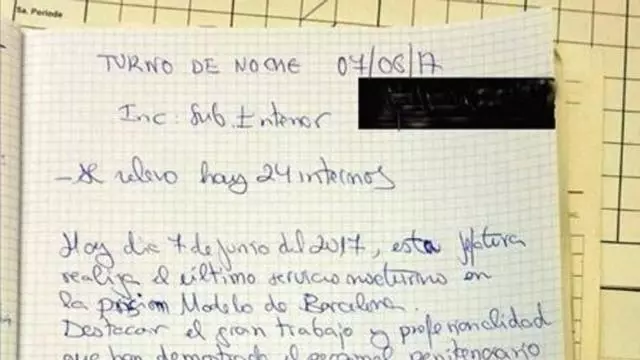 5a. Periode
TURNO DE NOCHE 07/06/17
Inc: Sub. Interior
- Al relevo hay 24 internos
Hoy día 7 de junio del 2017, esta jefatura
realiza el último servicio nocturno en
la prisión Modelo de Barcelona.
Destacar el gran trabajo y profesionalidad
que han demostrado el personal penitenciario